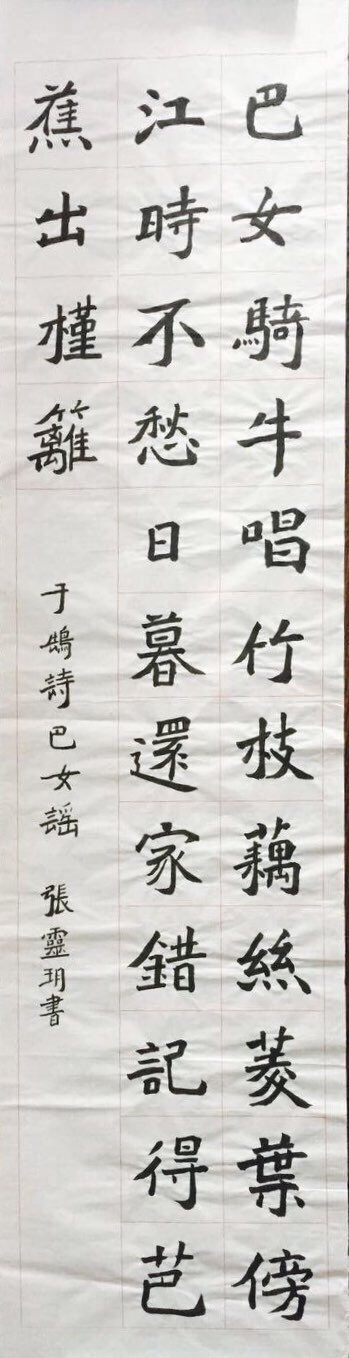 巴女騎牛唱竹枝藕絲菱葉傍
江時不愁日暮還家錯記得芭
蕉出槿籬
于鵠詩巴女謡 張靈玥書